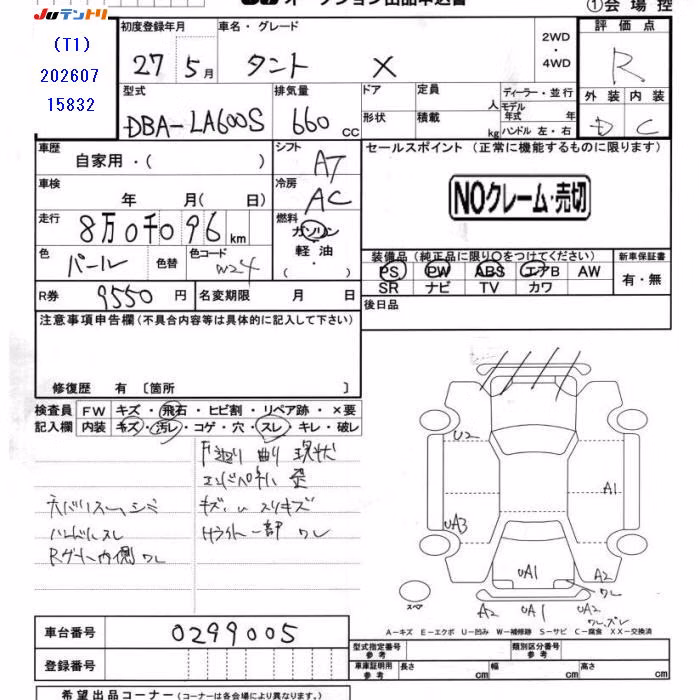 JUテントリ オークション出品申込書 ①会場控
(T1)
202607
15832
初度登録年月 車名・グレード 2WD・4WD 評価点
27 5月 タント X R
型式 排気量 ドア 定員 人 ディーラー・並行 外装 内装
DBA-LA600S 660 cc 形状 積載 kg モデル年式 年式 ハンドル 左・右 D C
車歴 自家用・( ) シフト AT セールスポイント (正常に機能するものに限ります)
車検 年 月( 日) 冷房 AC NOクレーム・売切
走行 8万0千096km 燃料 ガソリン・軽油・( )
色 パール 色替 色コード W24
装備品 (純正品に限り○をつけてください) 新車保証書
PS PW ABS エアB AW 有・無
SR ナビ TV カワ
R券 9550円 名変期限 月 日 後日品
注意事項申告欄 (不具合内容等は具体的に記入して下さい)
修復歴 有〔箇所 〕
検査員 FW キズ・飛石・ヒビ割・リペア跡・×要
記入欄 内装 キズ・汚レ・コゲ・穴・スレ・キレ・破レ
曲り 現状
エンドパネル 歪
シミ キズ・U スリキズ
ハンドル スレ Hライト一部 ワレ
内側 ワレ
U2
A1
UA3
UA1 A2
ワレ
スペア A2 UA1 UA2
ワレ.ズレ
A-キズ E-エクボ U-凹み W-補修跡 S-サビ C-腐食 XX-交換済
車台番号 0299005
型式指定番号 参考 類別区分番号 参考
登録番号 車庫証明用 参考 長さ cm 幅 cm 高さ cm
希望出品コーナー (コーナーは各会場により異なります。)